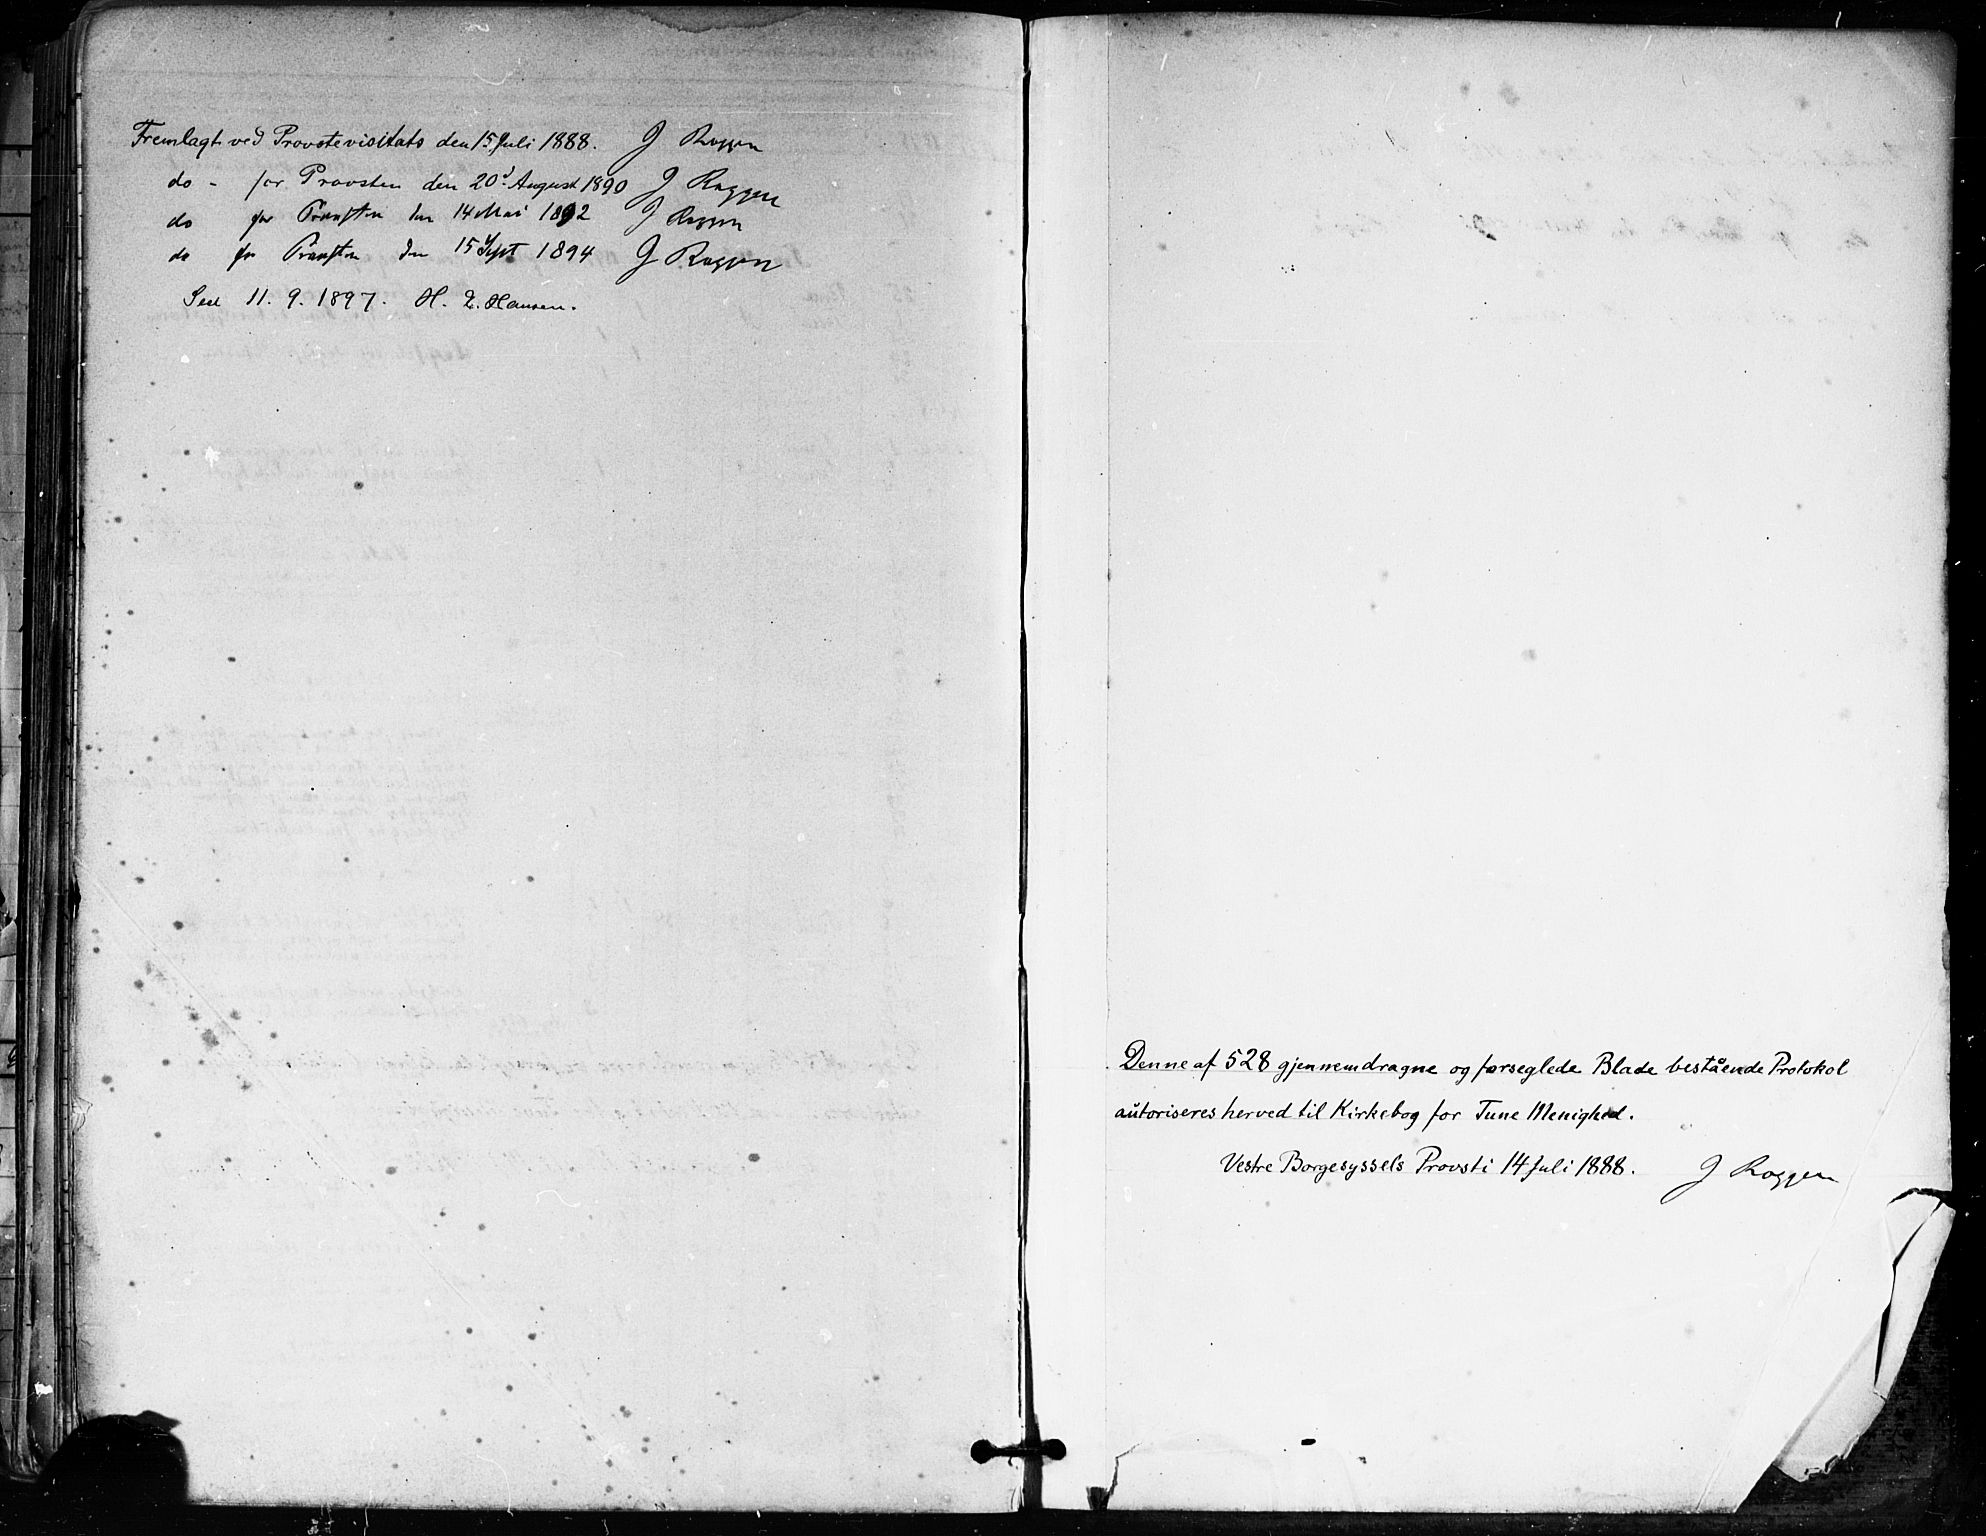 Fremlagt ved Provstevisitats den 15 Juli 1888. J Roggen
do - for Provsten den 20d August 1890 J Roggen
do for Provsten den 14 Mai 1892 J Roggen
do for Provsten den 15 Sept 1894 J Roggen
Seet 11. 9. 1897. H. Hansen.
Denne af 528 gjennemdragne og forseglede Blade bestående Protokol
autoriseres herved til Kirkebog for Tune Menighed.
Vestre Borgesyssels Provsti 14 Juli 1888. J Roggen